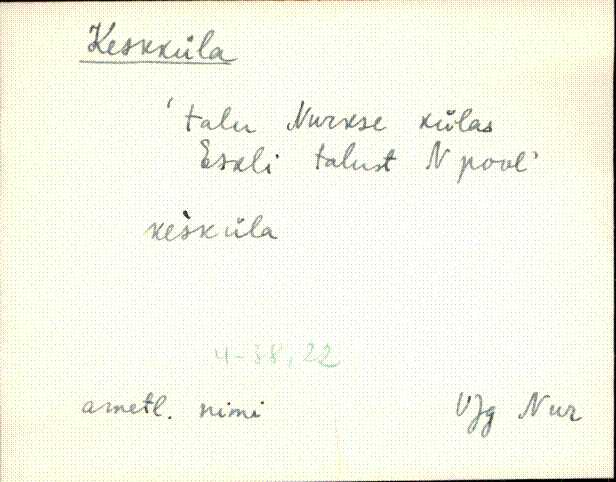 Keskküla
'talu Nurkse külas
Eskli talust N pool'
kèsküla
4-38, 22
ametl. nimi
VJg Nur